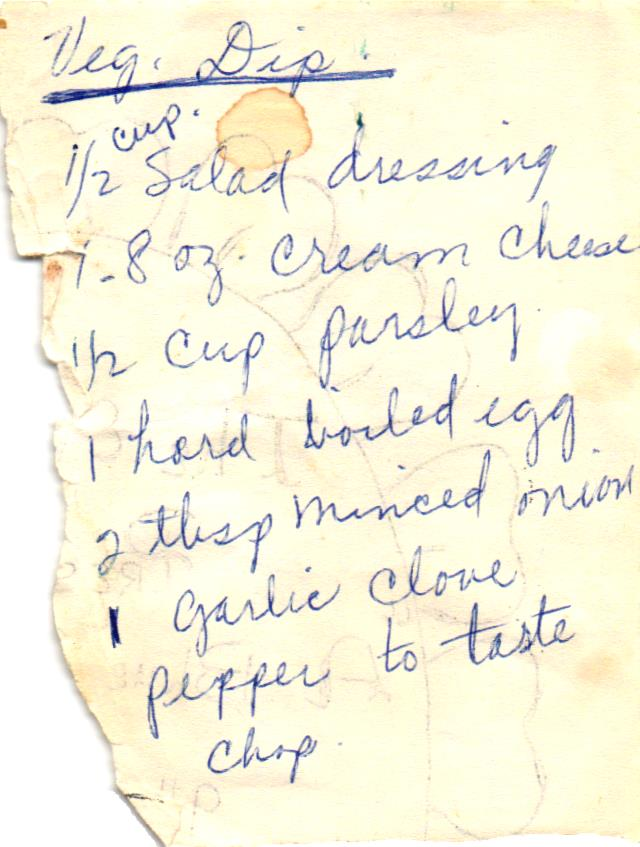 Veg. Dip.
cup.
1/2 Salad dressing
1-8 oz. cream cheese
1/2 cup parsley
1 hard boiled egg
2 tbsp minced onion
1 garlic clove
pepper to taste
chop.